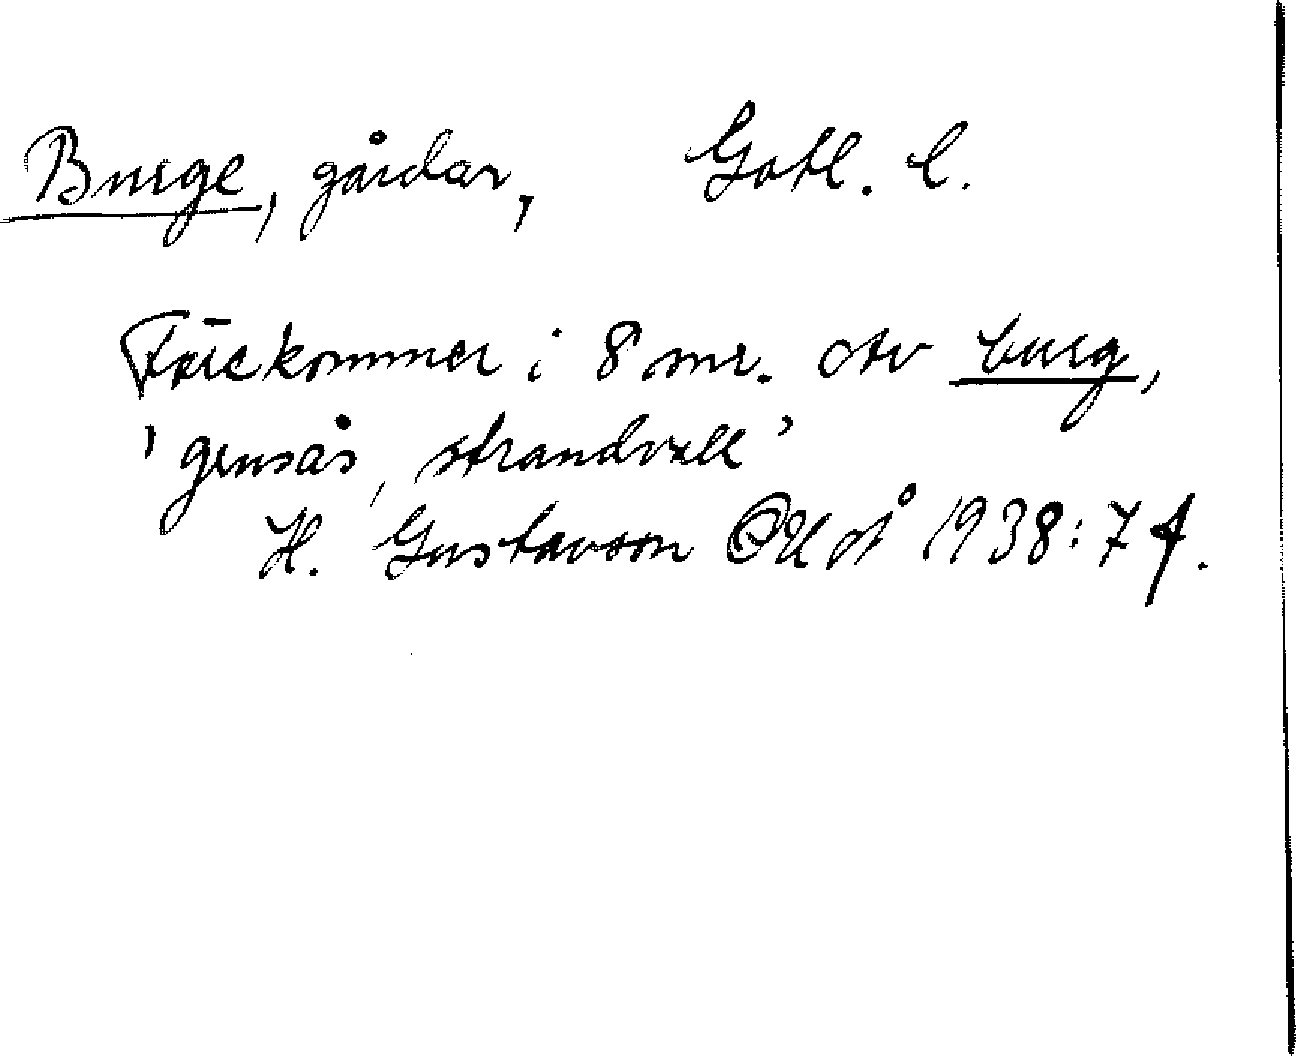 Burge, gårdar, Gotl. l.
Förekommer i 8 snr. Av burg,
'grusås, strandvall'
H. Gustavson OUÅ 1938: 7 f.